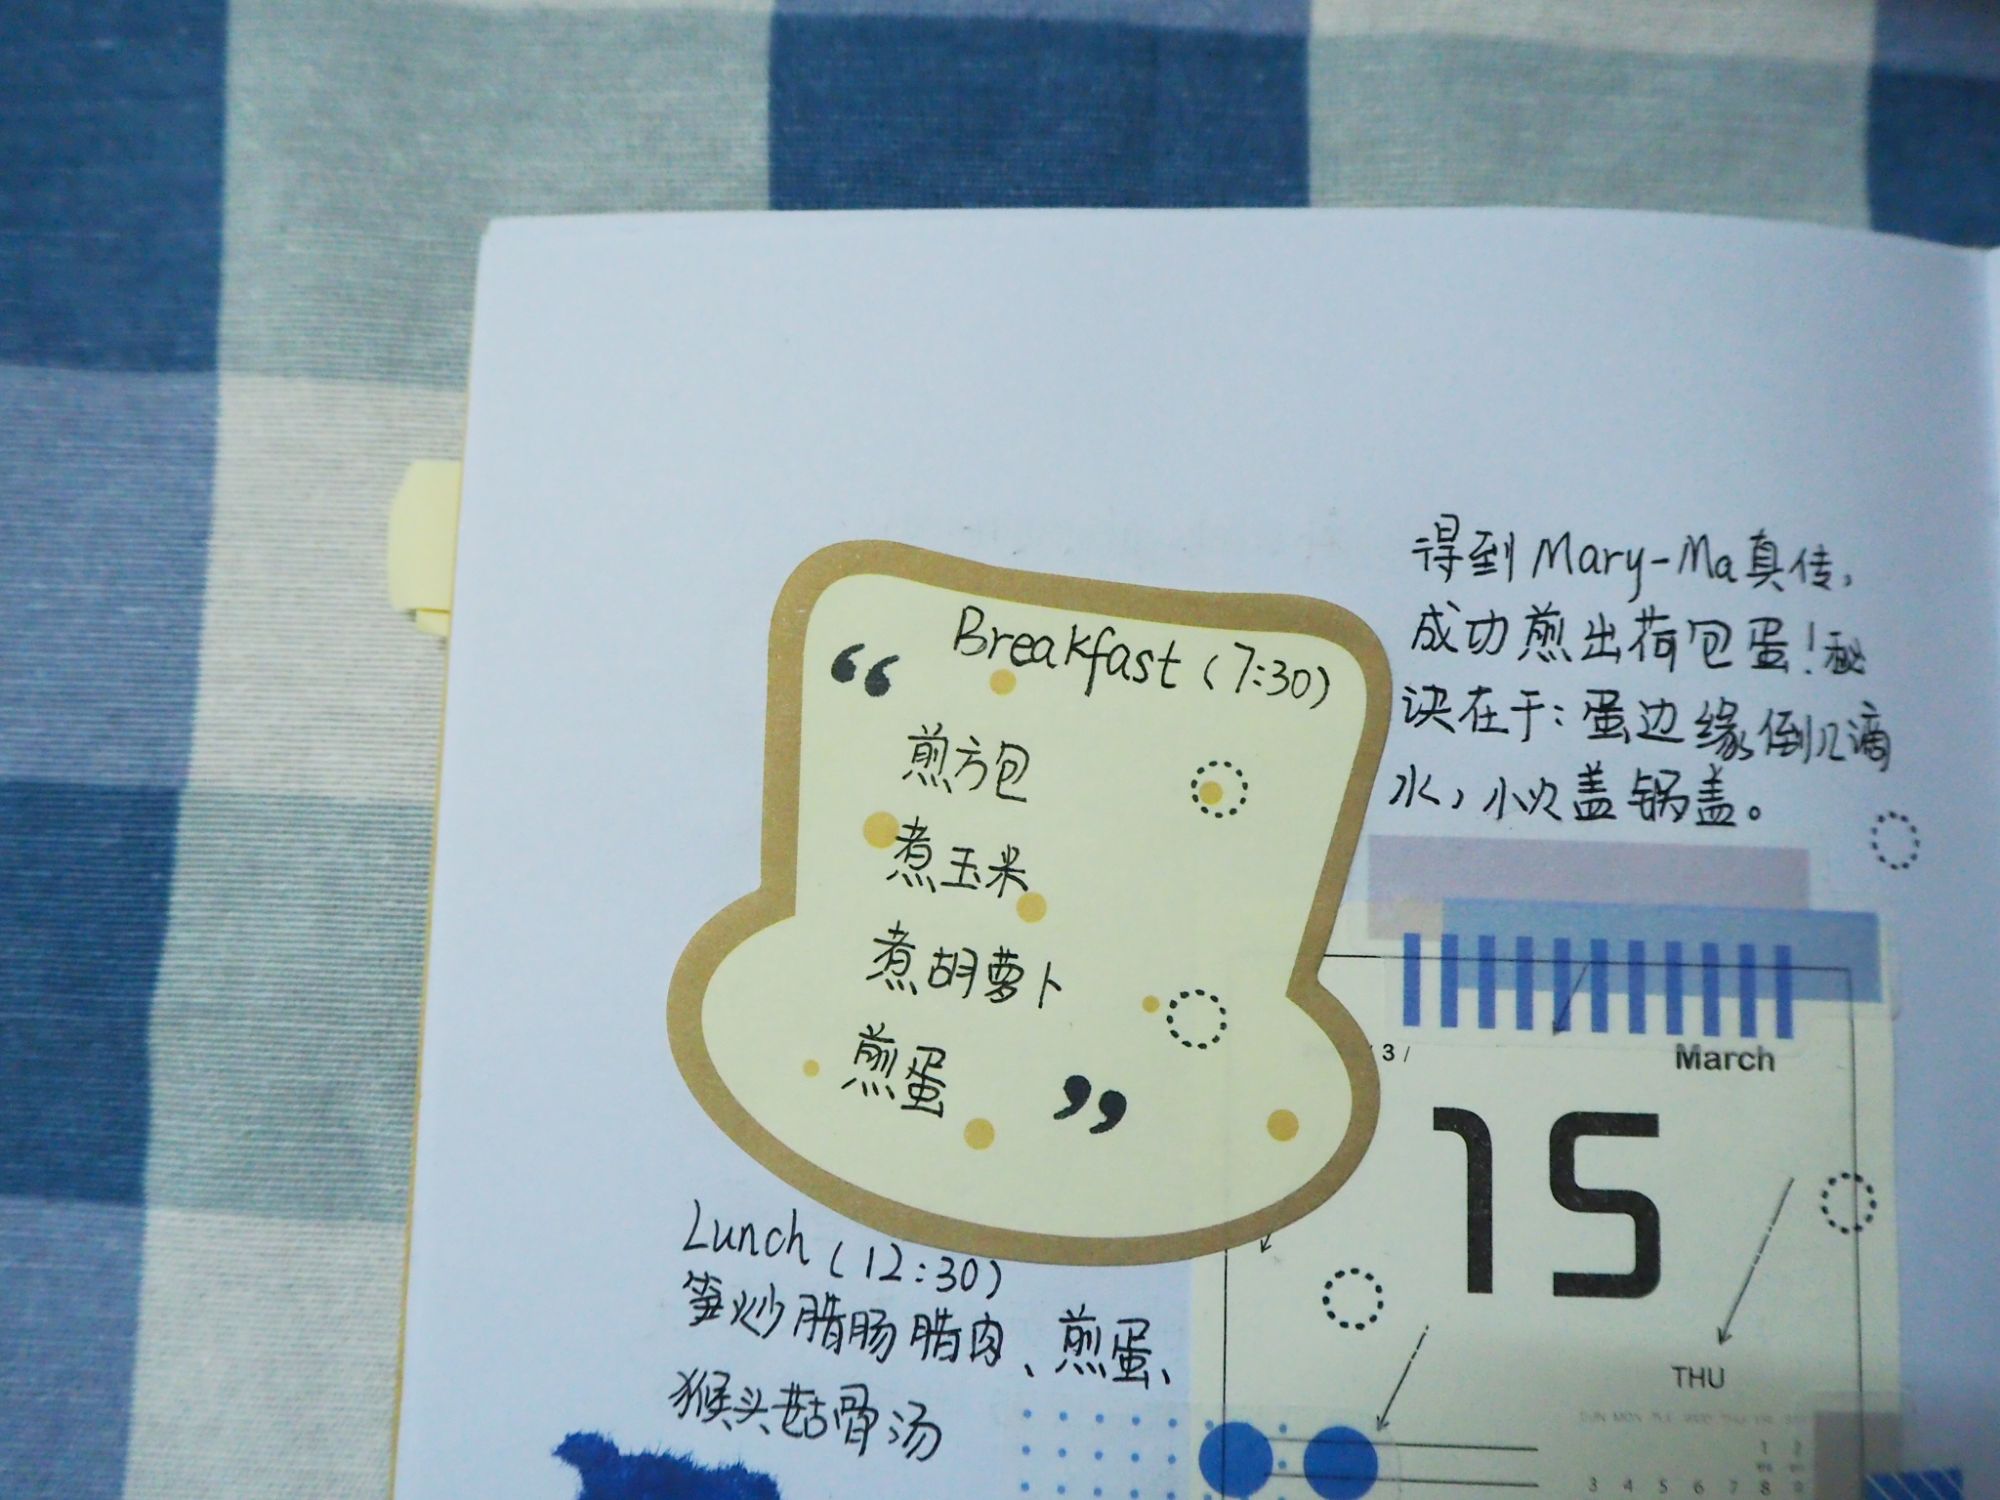 得到 Mary-Ma真传,
成功煎出荷包蛋!秘
诀在于:蛋边缘倒几滴
水,小火盖锅盖。
“
Breakfast (7:30)
煎方包
煮玉米
煮胡萝卜
煎蛋
”
3/
March
15
THU
SUN MON TUE WED THU FRI SAT
1 2
3 4 5 6 7 8 9
Lunch (12:30)
笋炒腊肠腊肉、煎蛋、
猴头菇骨汤